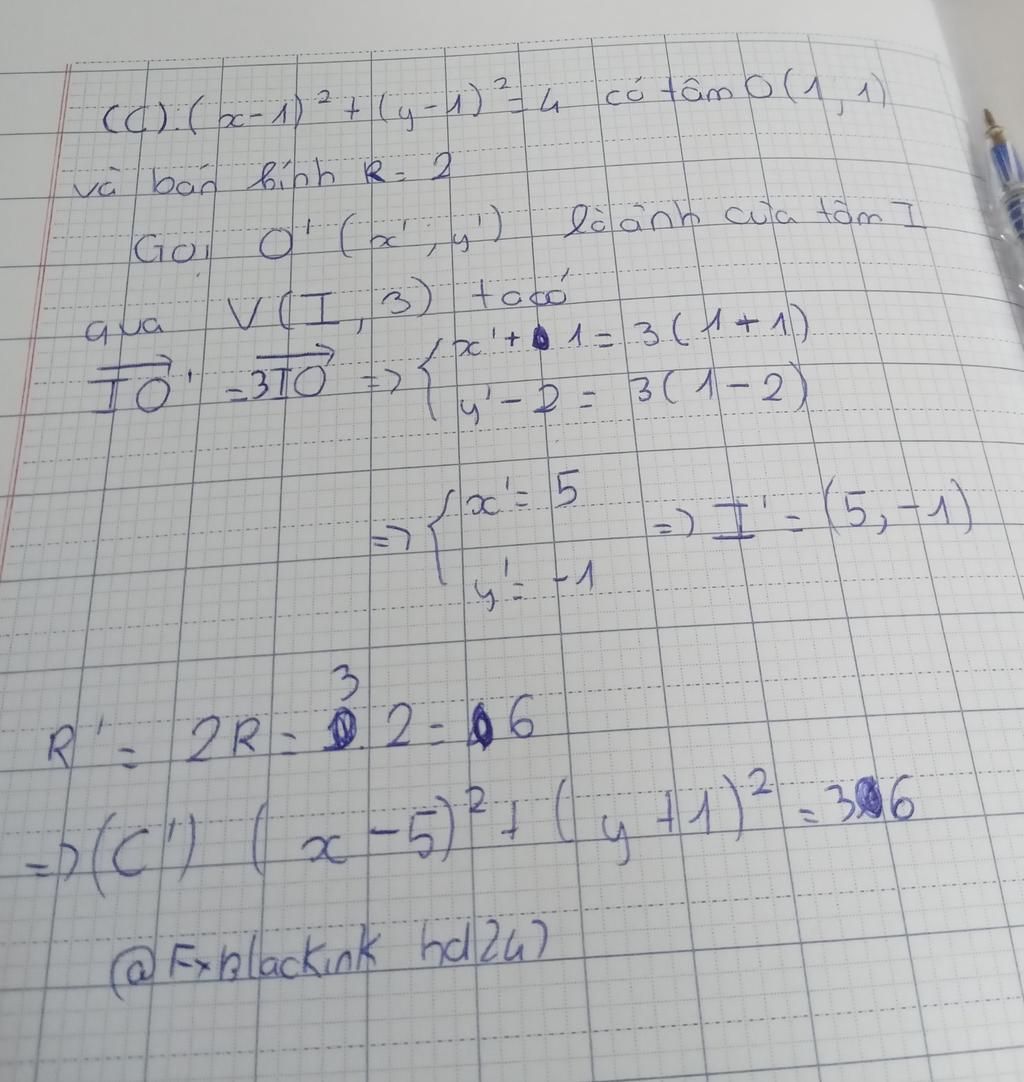 (C): (x-1)² + (y-1)² = 4 có tâm O(1,1)
và bán kính R = 2
Gọi O'(x'; y') là ảnh của tâm I
qua V(I, 3) ta có
IO' = 3IO => { x' + 1 = 3(1+1)
y' - 2 = 3(1-2)
=> { x' = 5
y' = -1 => I' = (5, -1)
R' = 2R = 3.2 = 6
=> (C') (x-5)² + (y+1)² = 36
@Fxblackink hd247